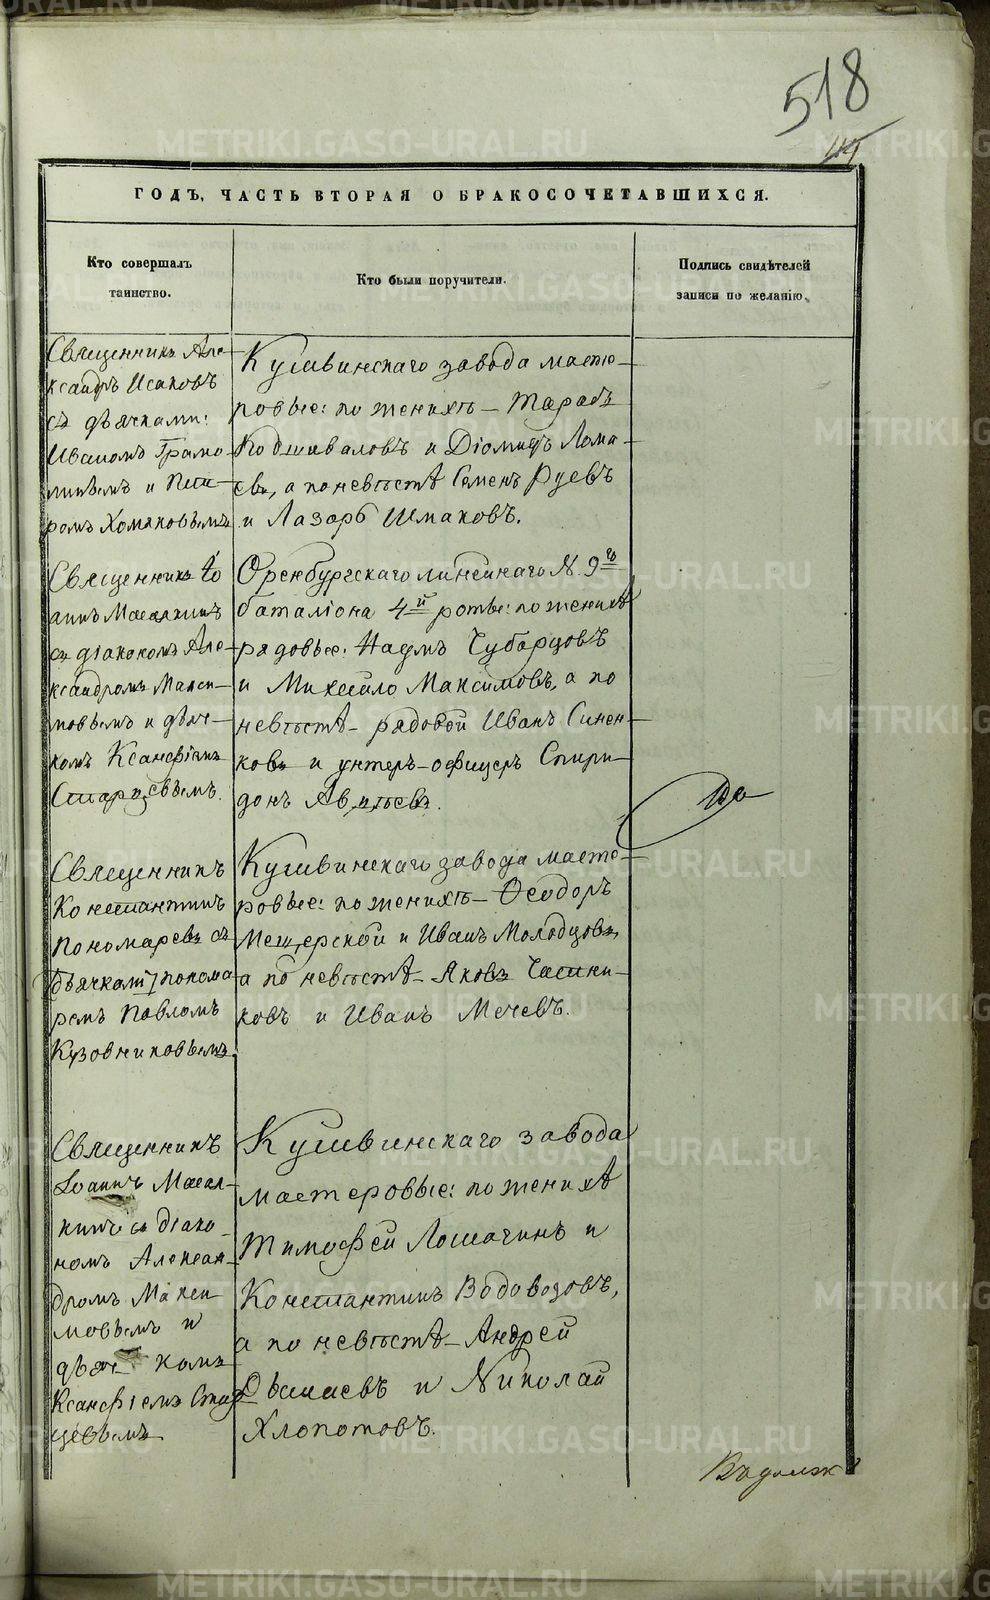 518
ГОДЪ, ЧАСТЬ ВТОРАЯ О БРАКОСОЧЕТАВШИХСЯ.
Кто совершалъ
таинство.
Кто были поручители.
Подпись свидѣтелей
записи по желанію.
Священникъ Але-
ксандръ Исаковъ
съ дьячками:
Иваномъ Грамо-
линымъ и Пет-
ромъ Хомяковымъ
Кушвинскаго завода масте-
ровые: по женихѣ - Тарасъ
Кодшиваловъ и Діомидъ Лома-
евъ, а по невѣстѣ Семенъ Руевъ
и Лазарь Шмаковъ.
Священникъ Іо-
аннъ Масалкинъ
съ діакономъ Але-
ксандромъ Макси-
мовымъ и дьяч-
комъ Ксанфіемъ
Старцевымъ.
Оренбургскаго линейнаго N. 9го
баталіона 4й роты: по женихѣ
рядовые: Наумъ Чубарцовъ
и Михайло Максимовъ, а по
невѣстѣ - рядовой Иванъ Синен-
ковъ и унтеръ-офицеръ Спири-
донъ Авдѣевъ.
Священникъ
Константинъ
Пономаревъ съ
дьячкомъ понома-
ремъ Павломъ
Кузовниковымъ.
Кушвинскаго завода масте-
ровые: по женихѣ - Ѳеодоръ
Мещерской и Иванъ Молодцовъ,
а по невѣстѣ - Яковъ Чесни-
ковъ и Иванъ Мечевъ.
Священникъ
Іоаннъ Масал-
кинъ съ діако-
номъ Алексан-
дромъ Макси-
мовымъ и
дьячкомъ
Ксанфіемъ Стар-
цевымъ
Кушвинскаго завода
мастеровые: по женихѣ
Тимофей Лошачинъ и
Константинъ Водовозовъ,
а по невѣстѣ - Андрей
и Николай
Хлопотовъ.
METRIKI.GASO-URAL.RU